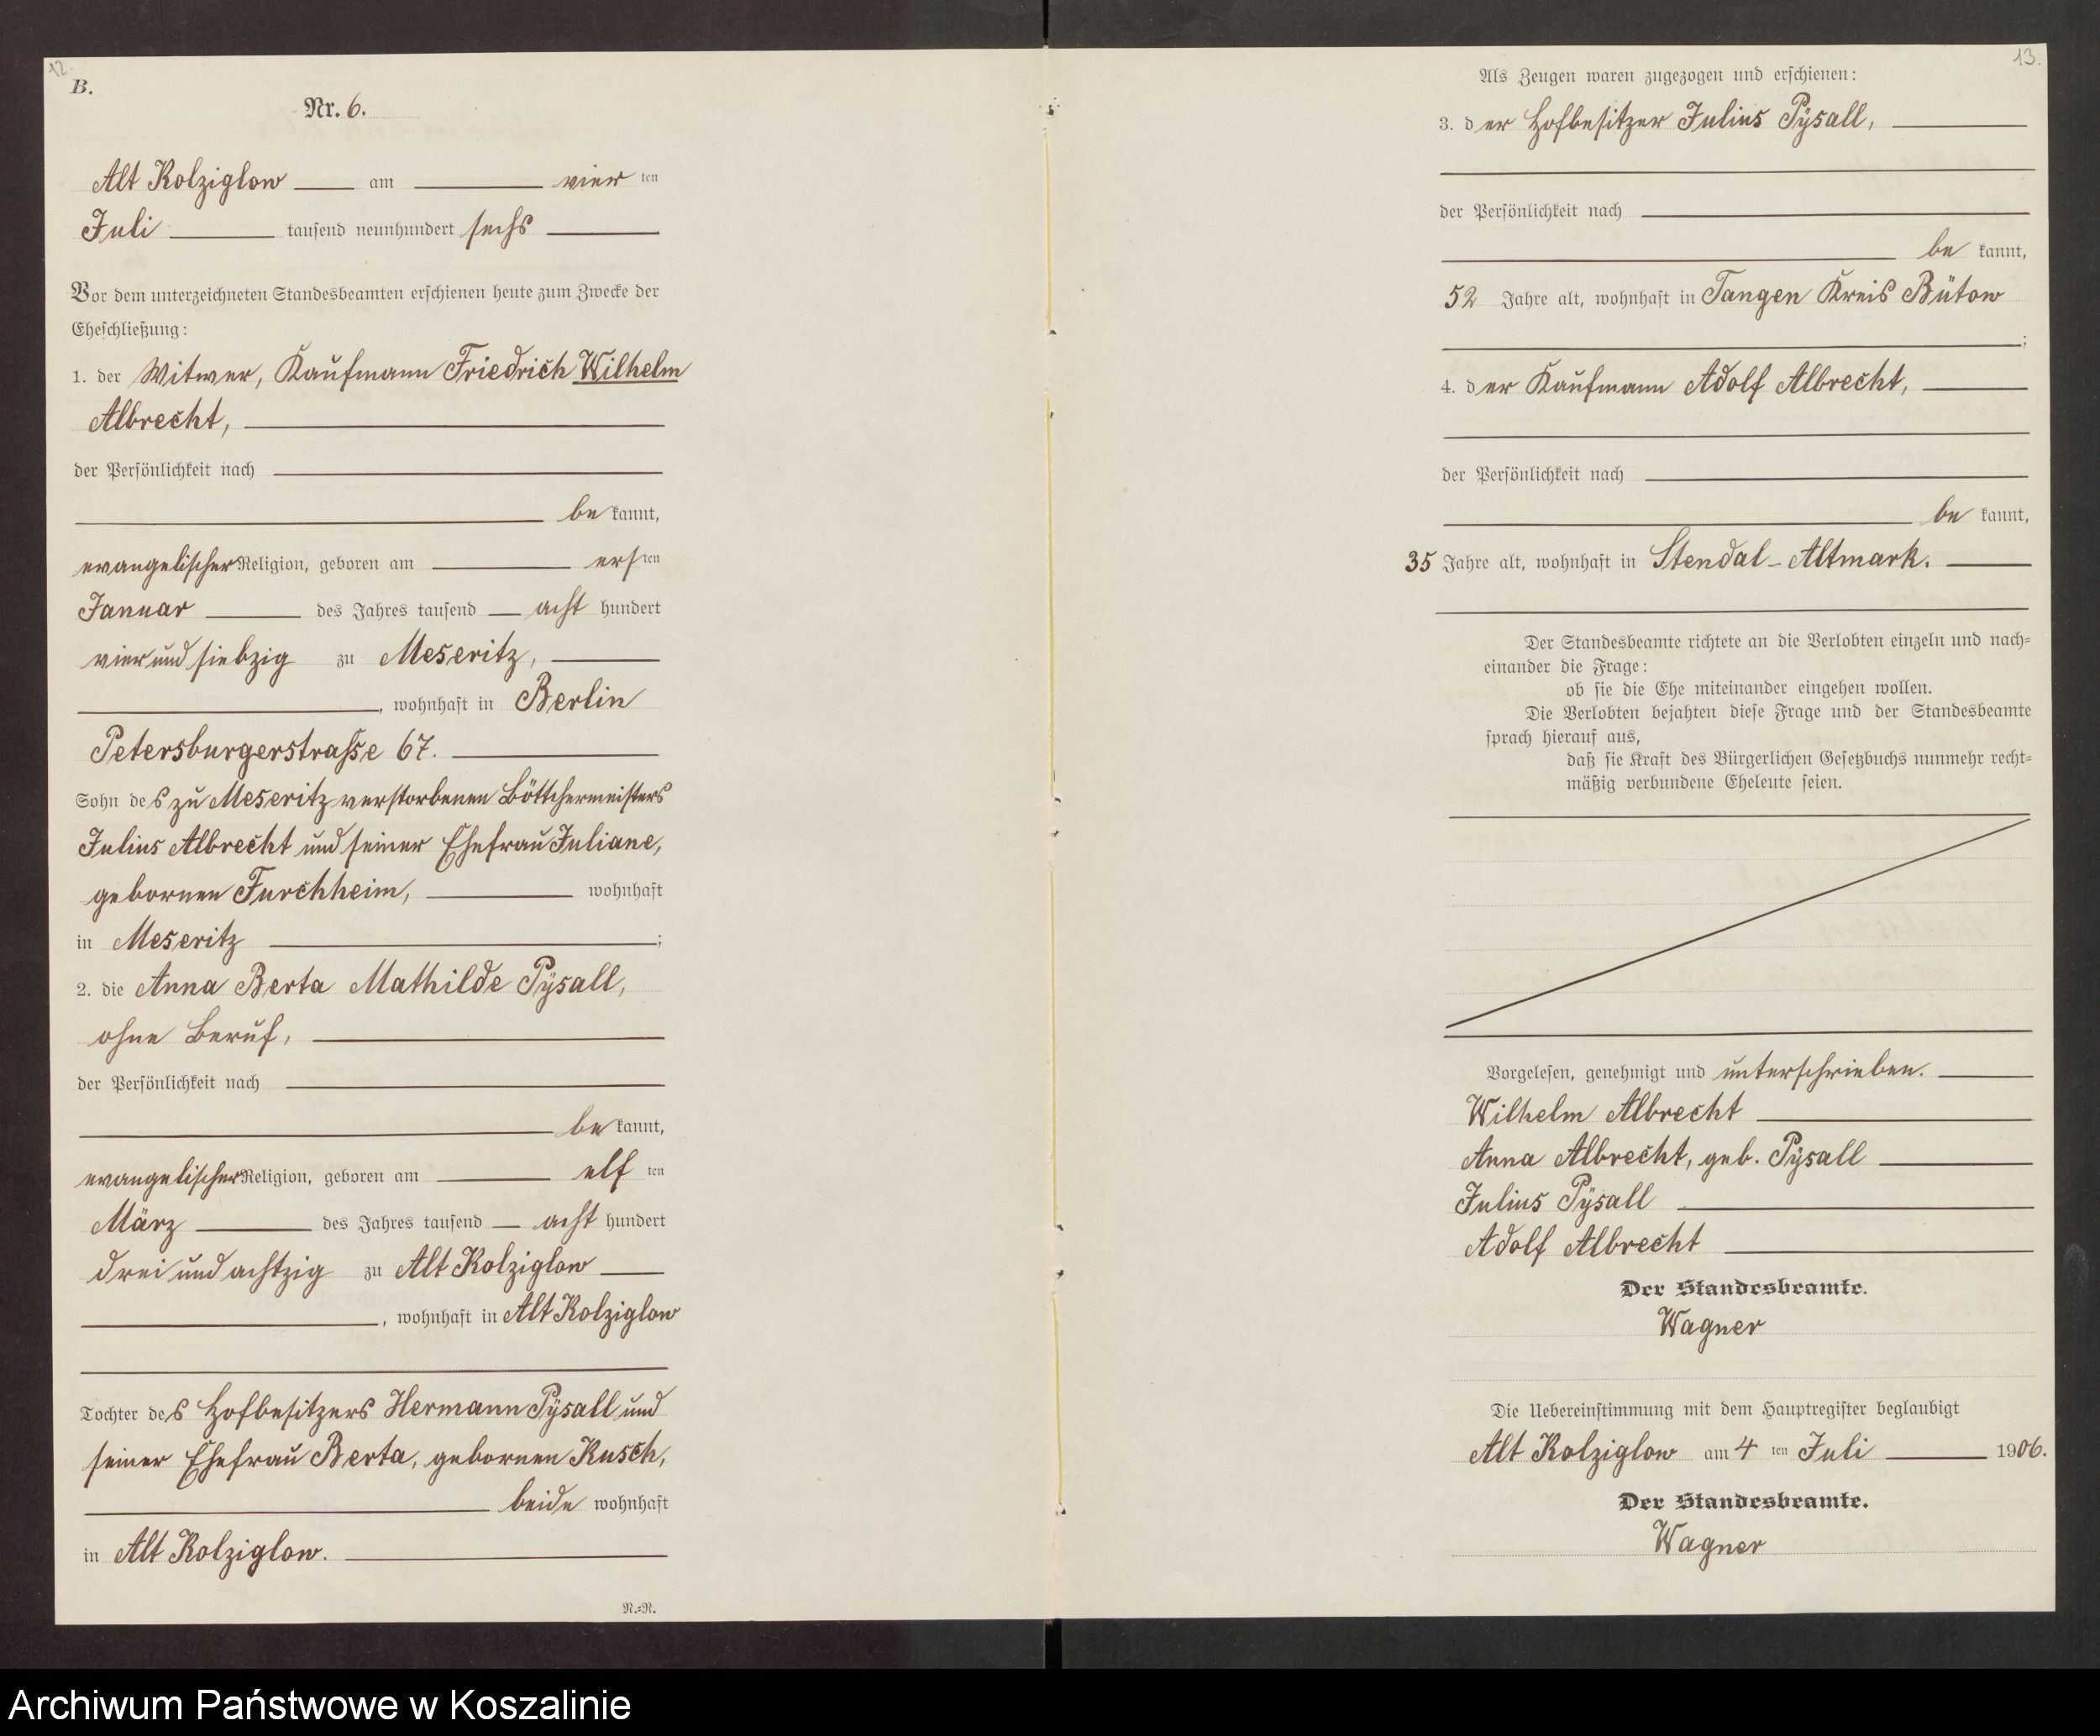 12.
B.
Nr. 6.
Alt Kolziglow am vier ten
Juli tausend neunhundert sechs
Vor dem unterzeichneten Standesbeamten erschienen heute zum Zwecke der
Eheschließung:
1. der Witwer, Kaufmann Friedrich Wilhelm
Albrecht,
der Persönlichkeit nach
be kannt,
evangelischer Religion, geboren am ers ten
Januar des Jahres tausend acht hundert
vier und siebzig zu Meseritz,
, wohnhaft in Berlin
Petersburgerstrasse 67.
Sohn des zu Meseritz verstorbenen Böttchermeisters
Julius Albrecht und seiner Ehefrau Juliane,
gebornen Furchheim, wohnhaft
in Meseritz ;
2. die Anna Berta Mathilde Pÿsall,
ohne Beruf,
der Persönlichkeit nach
be kannt,
evangelischer Religion, geboren am elf ten
März des Jahres tausend acht hundert
drei und achtzig zu Alt Kolziglow
, wohnhaft in Alt Kolziglow
Tochter des Hofbesitzers Hermann Pÿsall und
seiner Ehefrau Berta, gebornen Kusch,
beide wohnhaft
in Alt Kolziglow.
N.=N.
13.
Als Zeugen waren zugezogen und erschienen:
3. der Hofbesitzer Julius Pÿsall,
der Persönlichkeit nach
be kannt,
52 Jahre alt, wohnhaft in Tangen Kreis Bütow
;
4. der Kaufmann Adolf Albrecht,
der Persönlichkeit nach
be kannt,
35 Jahre alt, wohnhaft in Stendal - Altmark.
Der Standesbeamte richtete an die Verlobten einzeln und nach=
einander die Frage:
ob sie die Ehe miteinander eingehen wollen.
Die Verlobten bejahten diese Frage und der Standesbeamte
sprach hierauf aus,
daß sie Kraft des Bürgerlichen Gesetzbuchs nunmehr recht=
mäßig verbundene Eheleute seien.
Vorgelesen, genehmigt und unterschrieben.
Wilhelm Albrecht
Anna Albrecht, geb. Pÿsall
Julius Pÿsall
Adolf Albrecht
Der Standesbeamte.
Wagner
Die Uebereinstimmung mit dem Hauptregister beglaubigt
Alt Kolziglow am 4 ten Juli 1906.
Der Standesbeamte.
Wagner
Archiwum Państwowe w Koszalinie